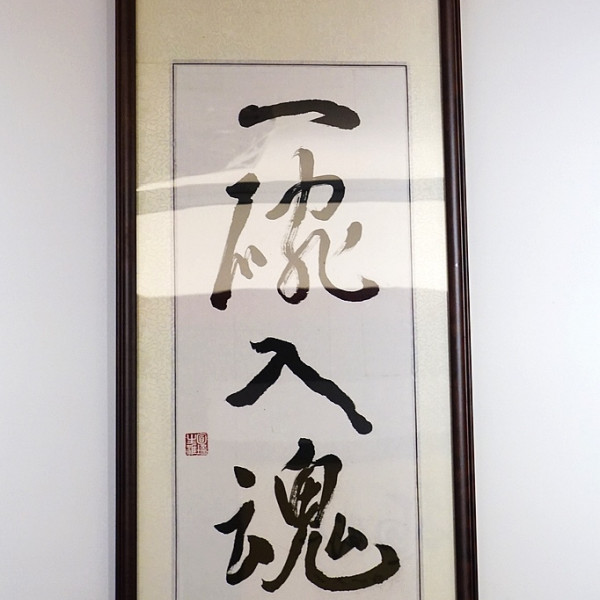 一碗入魂